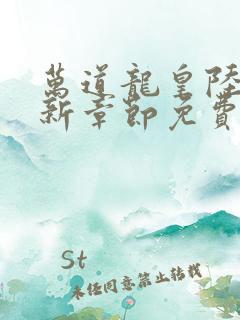 萬道龍皇陸
新章節免費
St
未經同意禁止轉載